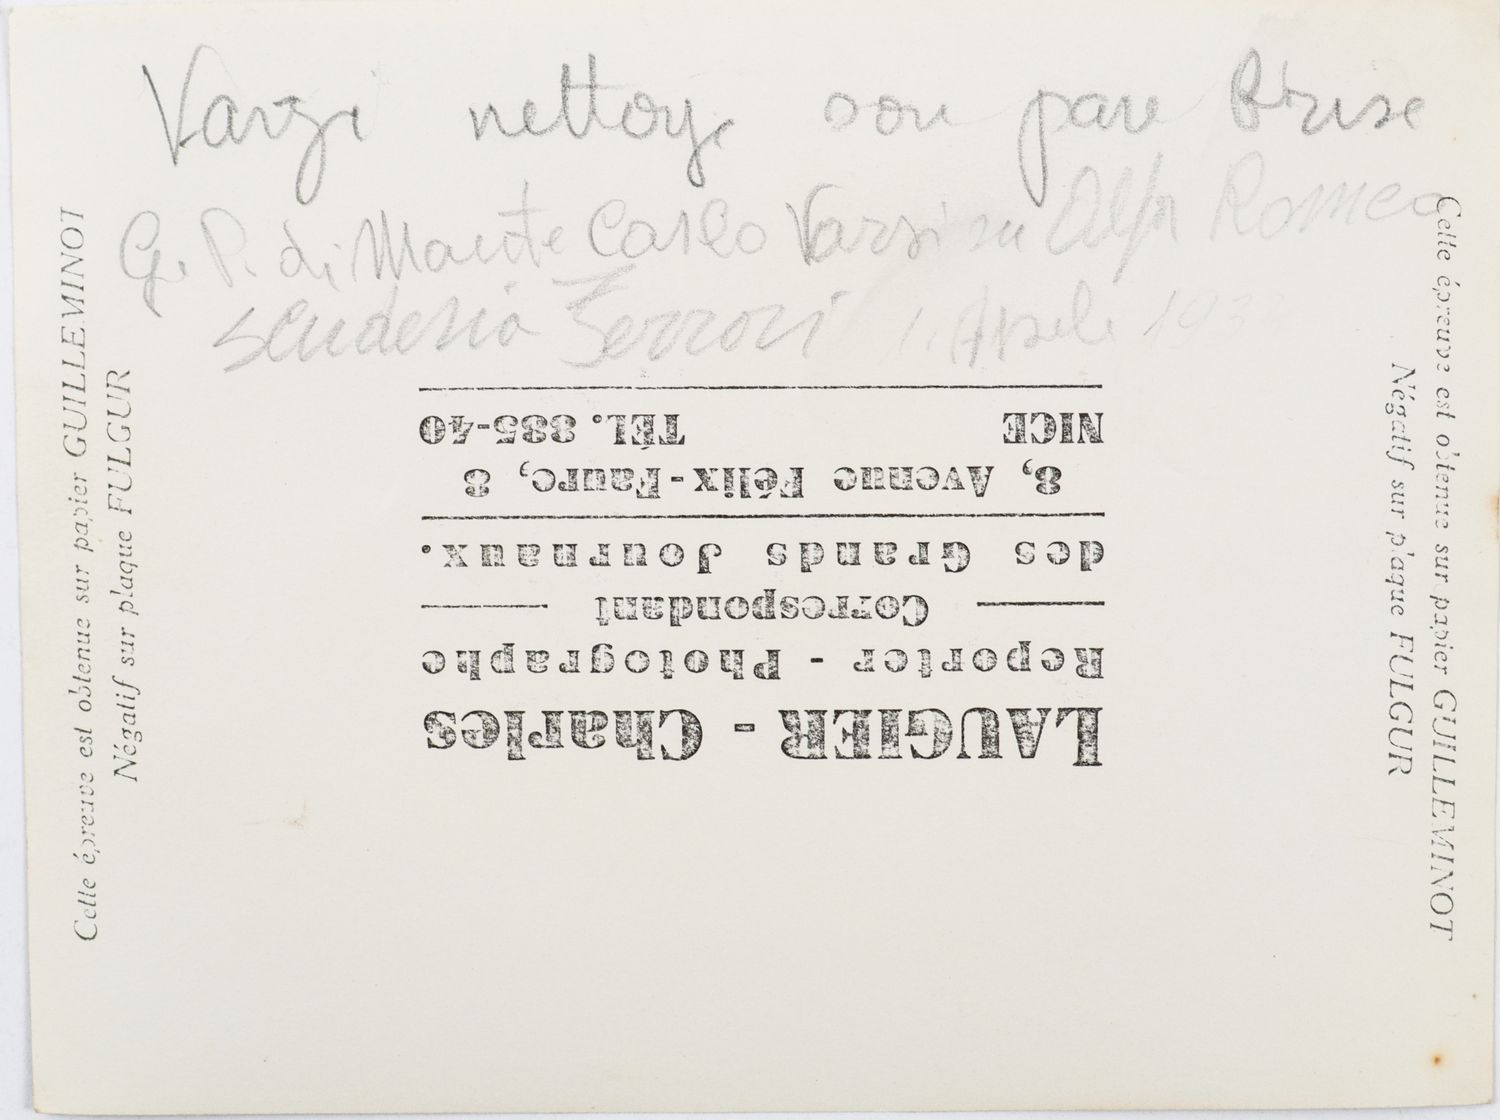 Varzi nettoye son pare Brise
G. P. di Monte Carlo Varzi su Alfa Romeo
scuderia Ferrari 1. Aprile
LAUGIER - Charles
Reporter - Photographe
Correspondant
des Grands Journaux.
8, Avenue Félix-Faure, 8
NICE TÉL. 885-40
Cette épreuve est obtenue sur papier GUILLEMINOT
Négatif sur plaque FULGUR
Cette épreuve est obtenue sur papier GUILLEMINOT
Négatif sur plaque FULGUR